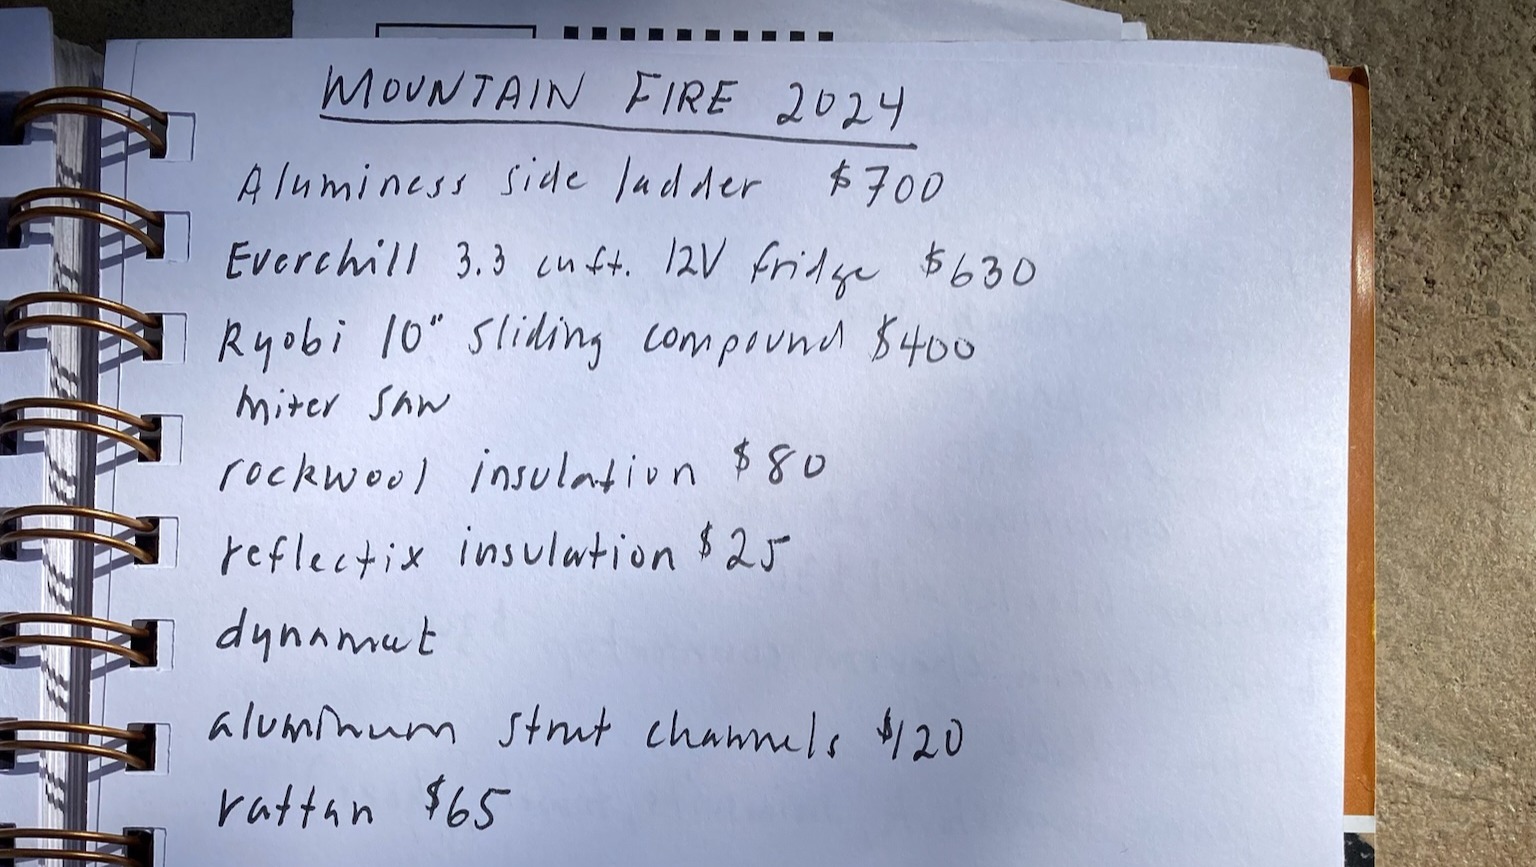 MOUNTAIN FIRE 2024
Aluminess side ladder $700
Everchill 3.3 cu ft. 12V fridge $630
Ryobi 10" sliding compound $400
miter saw
rockwool insulation $80
reflectix insulation $25
dynamat
aluminum strut channels $120
rattan $65